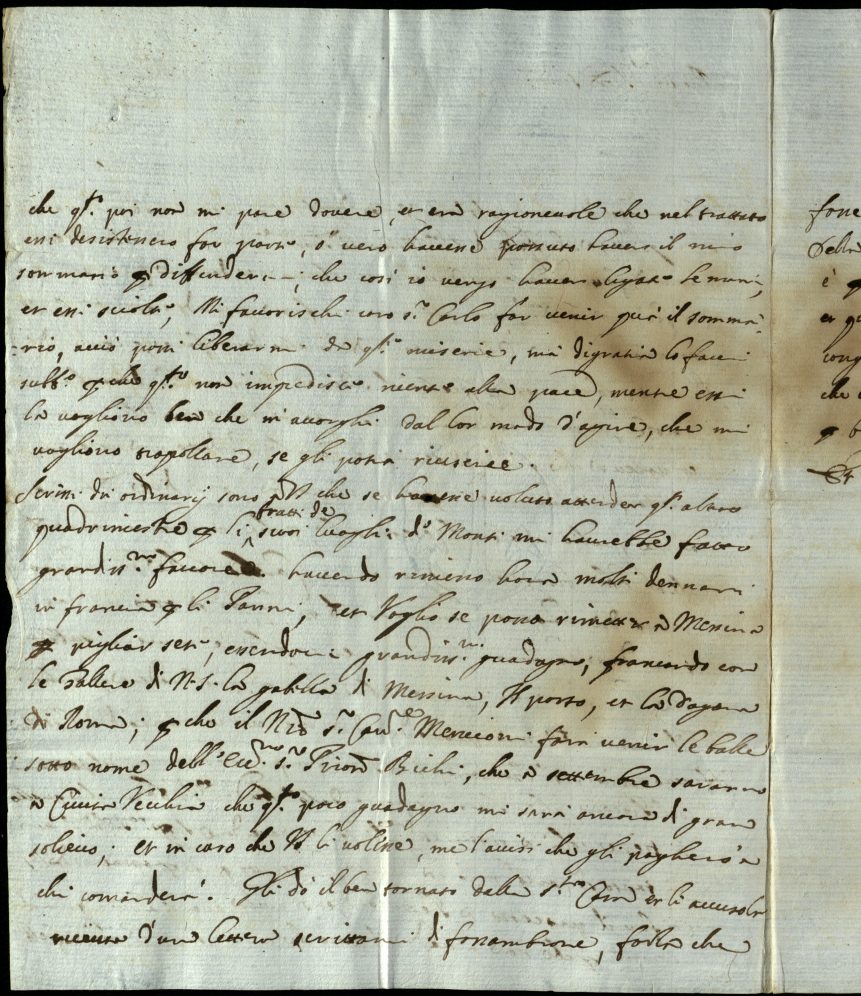 che q.to poi non mi pare dovere, et era ragionevole che nel trattato
essi desistessero for parte, ò vero havesse possuto havere il mio
sommario p diffendermi, che così io vengo haver ligate le mani,
et essi sciolte, Mi favorischi caro s.r Carlo far venir quà il somma-
rio, acciò possi liberarmi da q.te miserie, mà di gratia lo facci
subb.o p che q.to non impedisce niente alla pace, mentre essi
la vogliono ben che m'accorghi dal lor modo d'agire, che mi
vogliono trapollare, se gli potrà riuscire.
Scrissi dui ordinarij sono à VS che se havesse voluto attender q.st'altro
quadrimestre p li frutti de suoi luoghi di Monti mi haurebbe fatto
grandiss.mo favore havendo rimesso hora molti dennari
in francia p li Panni, et Voglio se posso rimetter à Messina
p pigliar seta, essendoci grandiss.mo guadagno, francando con
le Galere di N.S. la gabella di Messina, Il porto, et la dogana
di Roma; p che il s.r Cav.re Mencioni farà venir le balle
sotto nome dell'Ecc.mo s.r Prior Bichi, che à settembre saranno
à Civita Vecchia che q.to poco guadagno mi sarà ancora di gran
solievo; et in caso che VS li volesse, me l'avisi che gli pagherò à
chi comanderà. Gli dò il ben tornato dalla et li accuso la
d'una lettera scrittami di fossambrone, fuora che
fone
Della
è
et
cong
che
p